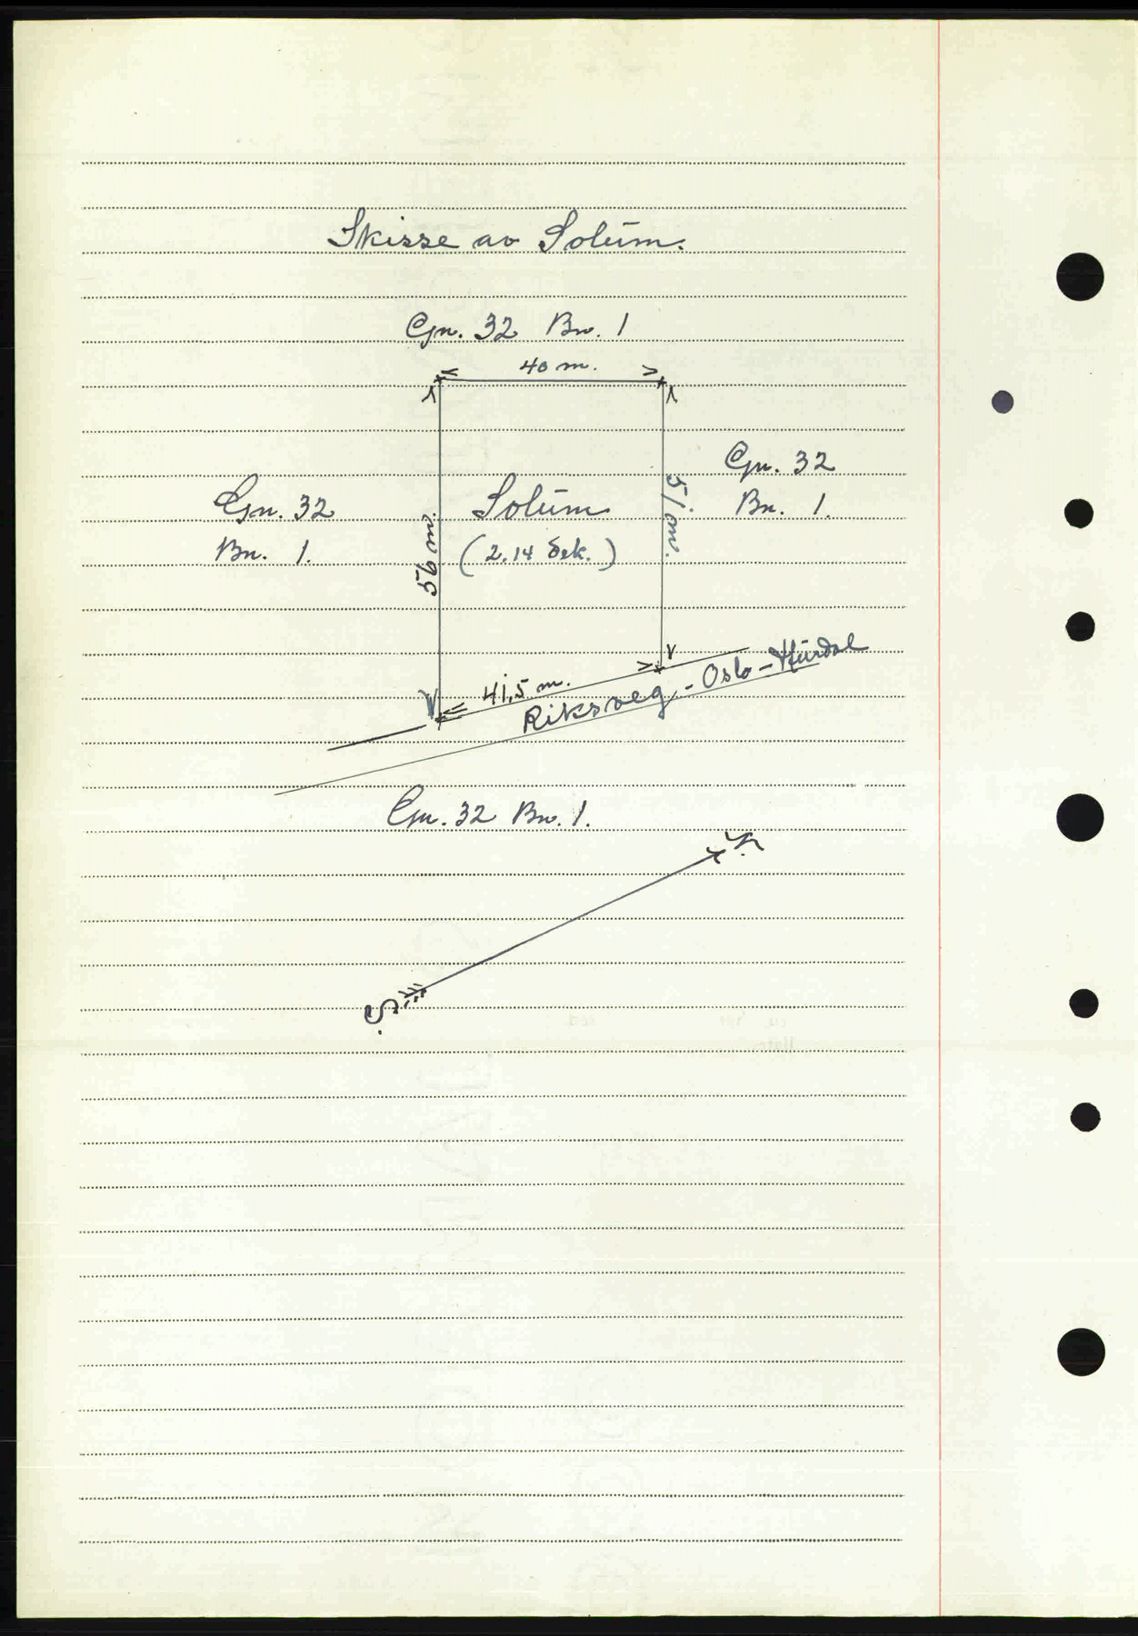 Skisse av Solum.
Gn. 32 Bn. 1
40 m.
Gn. 32
Bn. 1.
Gn. 32
Bn. 1.
Solum
(2.14 dek.)
56 m.
51 m.
41,5 m.
Riksveg - Oslo - Hurdal
Gn. 32 Bn. 1.
N.
S.